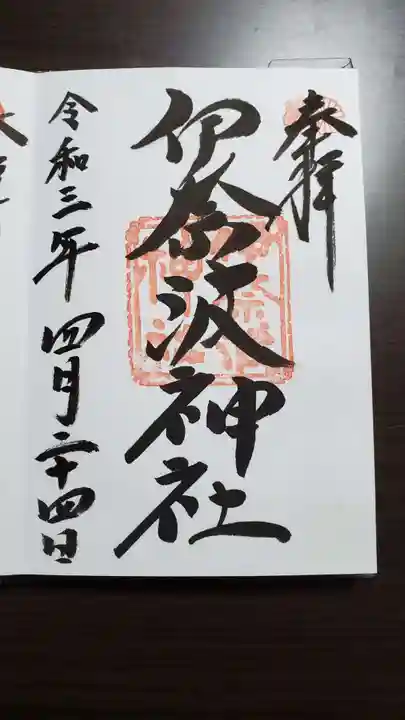 奉拝
伊奈波神社
令和三年四月二十四日